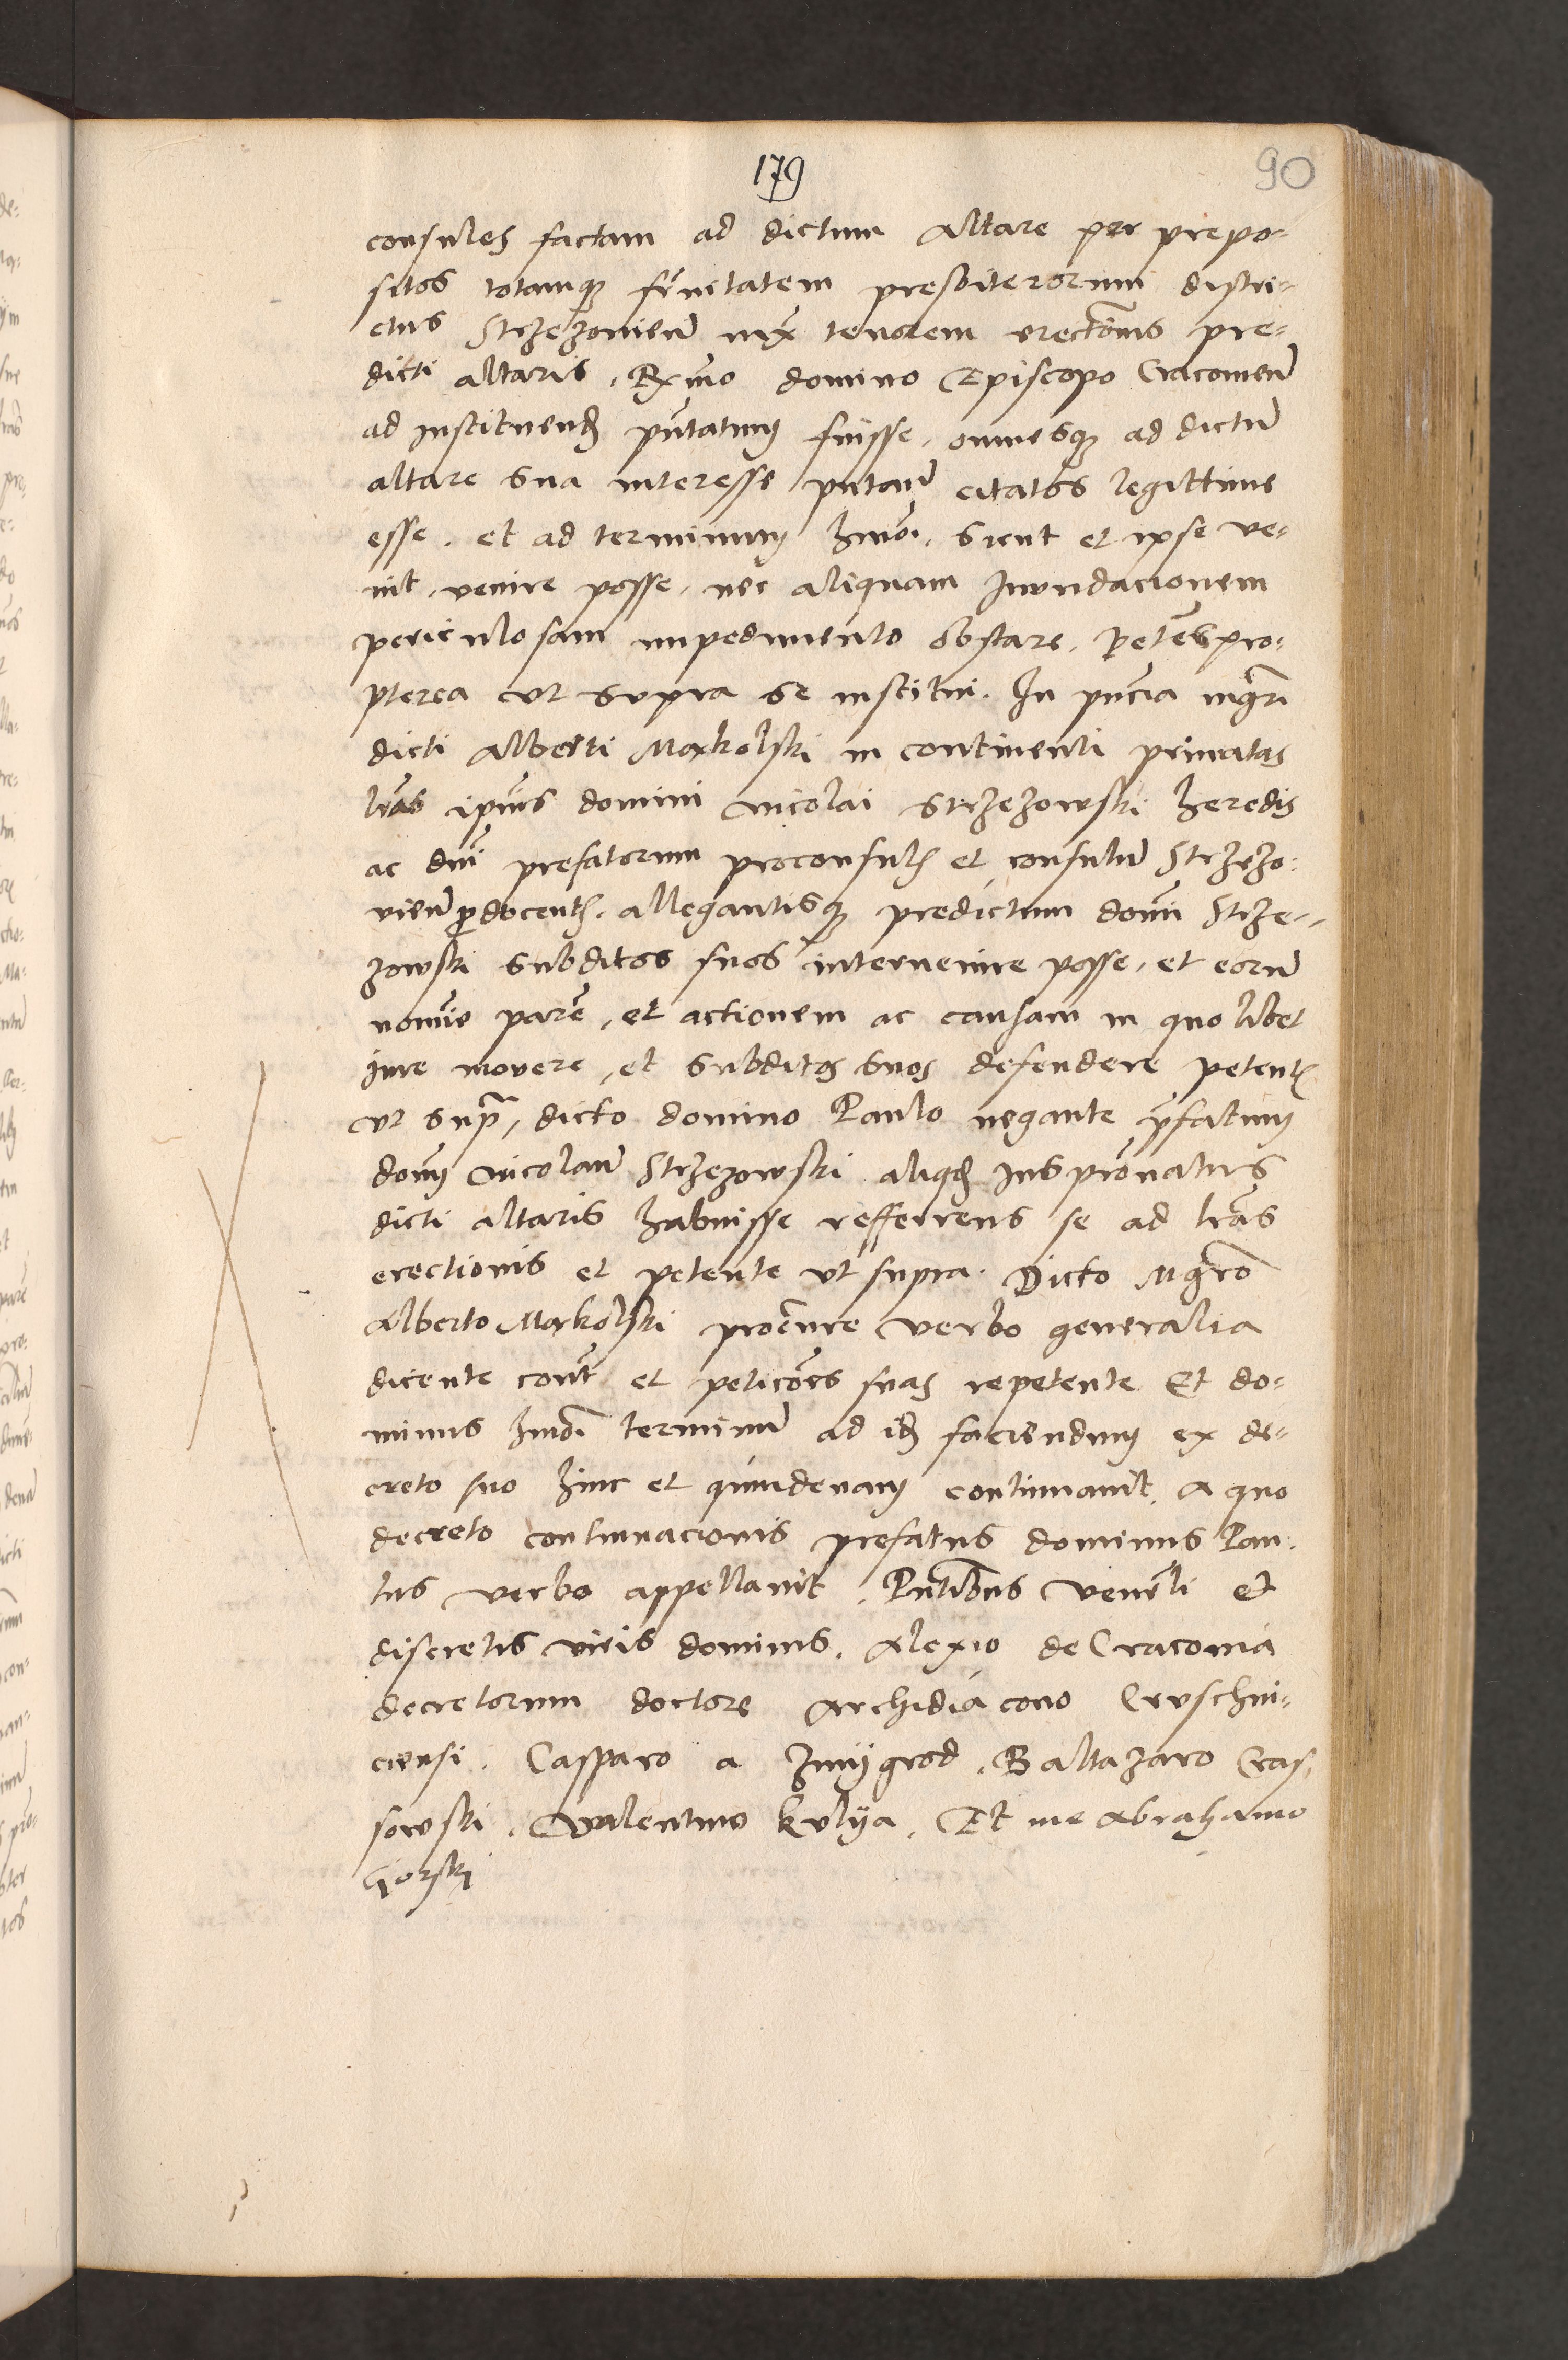 179
90
consules factam ad dictum altare per prepo-
sitos totamq3 fr̃nitatem presbiterorum distri-
ctus Strzezoviens̃ iux̃ tenorem erectõnis pre-
dicti altaris, Rx̃mo domino Episcopo Cracovieñ
ad instituend̃ pñtatum fuisse, omnesq3 ad dictũ
altare sua interesse putañ citatos legittime
esse. et ad terminum hmõi. sicut et ipse ve-
nit, venire posse, nec aliquam Inundacionem
periculosam impedimento obstare. Petẽs pro-
pterea vt supra se institui. In pñcia mgr̃i
dicti Alberti Markolski in continenti privatas
lr̃as ipius domini Nicolai Strzezowski heredis
ac dñi prefatorum proconsul̃ et consulũ Strzezo-
vieñ ꝓdocent̃. allegantisq3 predictum domĩ Strze-
zowski subditos suos intervenire posse, et eorũ
nomĩe parẽ, et actionem ac causam in quolibet
iure movere, et subditos suos defendere petent̃
vt supr̃, dicto domino Paulo negante p̃fatum
dom̃ Nicolaũ Strzezowski aliqd̃ ius pr̃onatus
dicti altaris habuisse refferrens se ad lr̃as
erectionis et petente vt supra. Dicto Mgr̃o
Alberto Markolski procũre verbo generalia
dicente cont̃ et peticões suas repetente Et do-
minus hmõi terminũ ad id̃ faciendum ex de-
creto suo hinc et quindenam continuavit. A quo
decreto continuacionis prefatus dominus Pau-
lus verbo appellavit. Pñtibus venerli et
discretis viris dominis, Alexio de Cracovia
decretorum doctore Archidiacono Cruschvi-
ciensi. Casparo a Zmÿgrod, Baltazaro Cras-
sowski, Valentino Kulÿa. Et me Abrahamo
Gorski